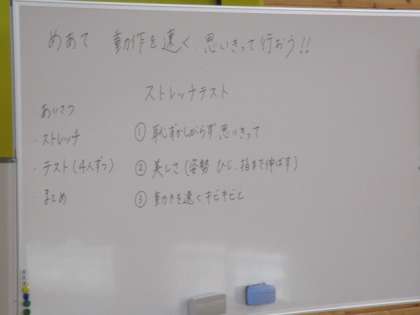 めあて 動作を速く 思いきって行おう!!
ストレッチテスト
あいさつ
・ストレッチ
・テスト(4人ずつ)
まとめ
① 恥ずかしがらず思いきって
② 美しさ(姿勢 ひじ、指まで伸ばす)
③ 動きを速くキビキビと